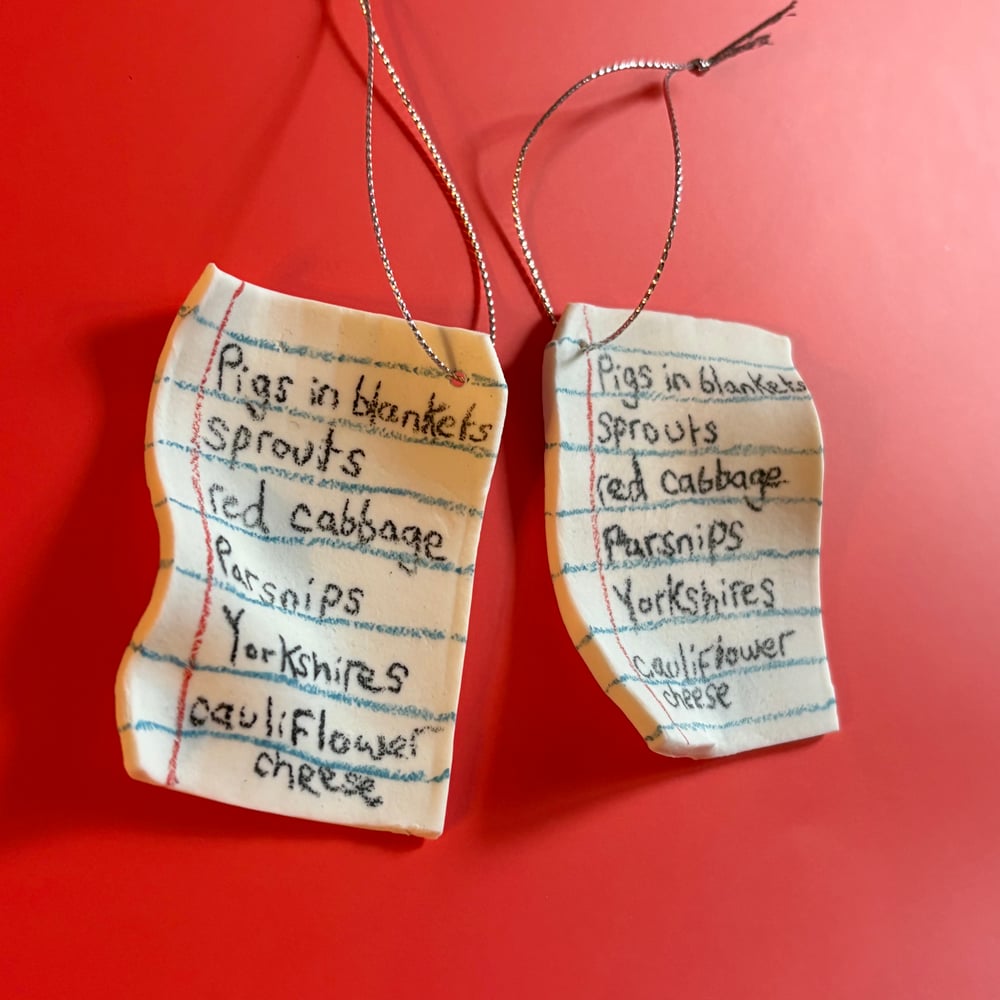 Pigs in blankets
Sprouts
red cabbage
Parsnips
Yorkshires
cauliFlower
cheese
Pigs in blankets
Sprouts
red cabbage
Parsnips
Yorkshires
cauliFlower
cheese